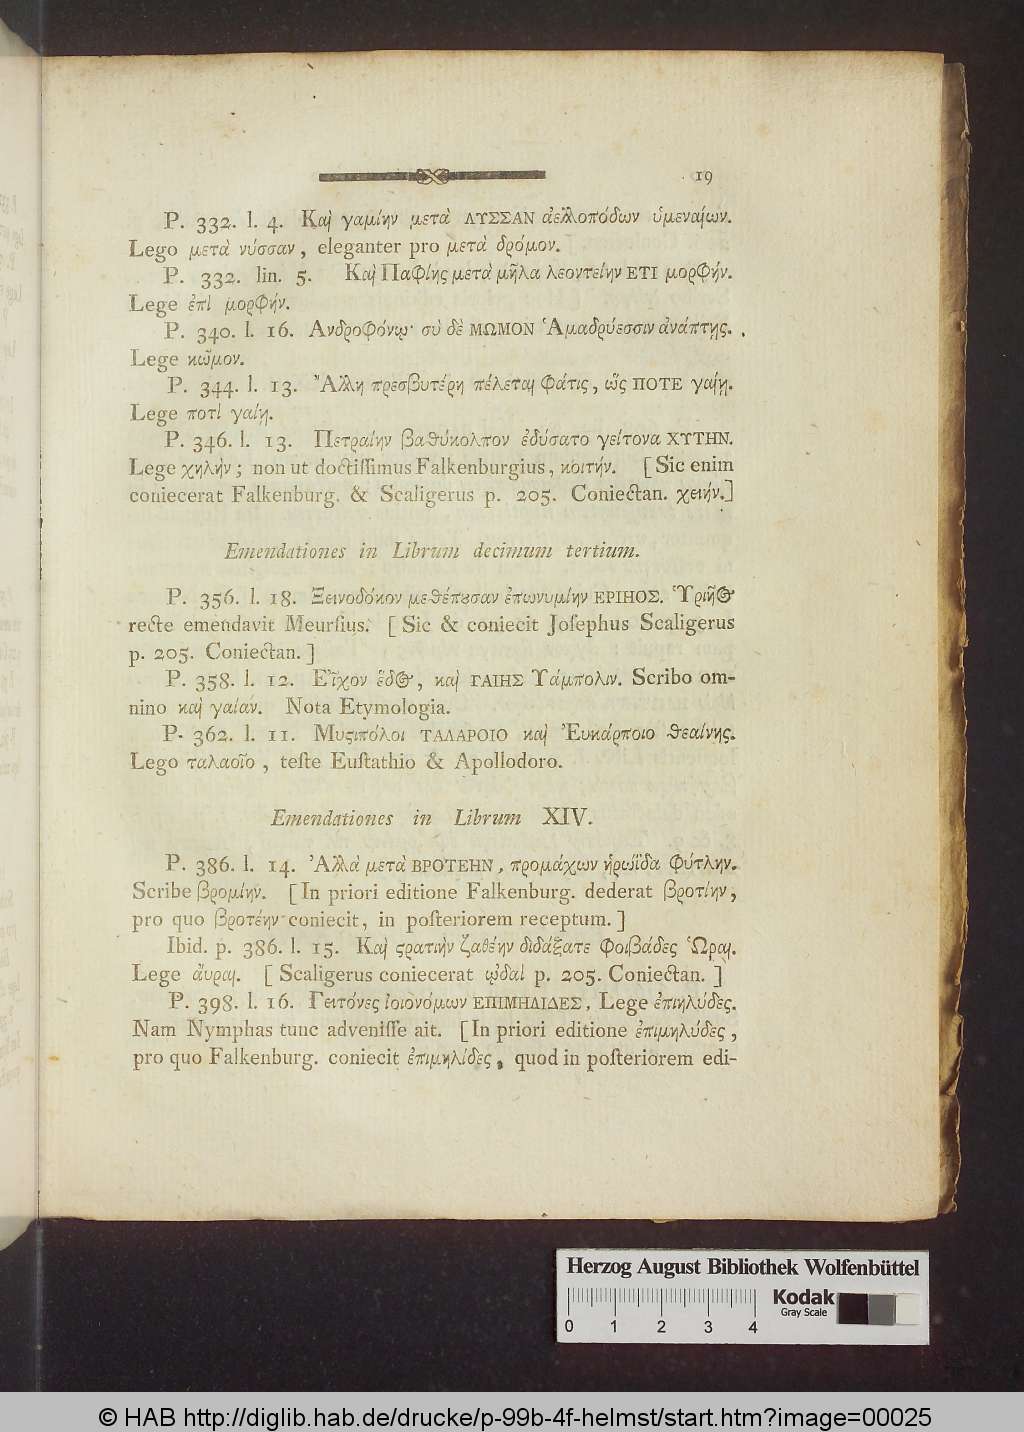 19
P. 332. l. 4. Καὶ γαμίην μετὰ ΛΥΣΣΑΝ ἀελλοπόδων ὑμεναίων.
Lego μετὰ νύσσαν, eleganter pro μετὰ δρόμον.
P. 332. lin. 5. Καὶ Παφίης μετὰ μῆλα λεοντείην ΕΤΙ μορφήν.
Lege ἐπὶ μορφήν.
P. 340. l. 16. Ανδροφόνῳ· σὺ δὲ ΜΩΜΟΝ Ἁμαδρύεσσιν ἀνάπτῃς.
Lege κῶμον.
P. 344. l. 13. Ἄλλη πρεσβυτέρη πέλεται φάτις, ὥς ΠΟΤΕ γαίῃ.
Lege ποτὶ γαίῃ.
P. 346. l. 13. Πετραίην βαθύκολπον ἐδύσατο γείτονα ΧΥΤΗΝ.
Lege χηλὴν; non ut doctiſſimus Falkenburgius, κοιτήν. [Sic enim
coniecerat Falkenburg. & Scaligerus p. 205. Coniectan. χειήν.]
Emendationes in Librum decimum tertium.
P. 356. l. 18. Ξεινοδόκον μεθέπουσαν ἐπωνυμίην ΕΡΙΗΟΣ. Ὑριῆος
recte emendavit Meurſius. [Sic & coniecit Joſephus Scaligerus
p. 205. Coniectan.]
P. 358. l. 12. Εἶχον ἕδος, καὶ ΓΑΙΗΣ Υάμπολιν. Scribo om-
nino καὶ γαίαν. Nota Etymologia.
P. 362. l. 11. Μυστιπόλοι ΤΑΛΑΡΟΙΟ καὶ Ἐυκάρποιο θεαίνης.
Lego ταλαοῖο, teſte Euſtathio & Apollodoro.
Emendationes in Librum XIV.
P. 386. l. 14. Ἀλλὰ μετὰ ΒΡΟΤΕΗΝ, προμάχων ἡρωΐδα φύτλην.
Scribe βρομίην. [In priori editione Falkenburg. dederat βροτίην,
pro quo βροτέην coniecit, in poſteriorem receptum.]
Ibid. p. 386. l. 15. Καὶ στρατιὴν ζαθέην διδάξατε Φοιβάδες Ὧραι.
Lege ἄυραι. [Scaligerus coniecerat ᾠδαὶ p. 205. Coniectan.]
P. 398. l. 16. Γειτόνες ἰοιονόμων ΕΠΙΜΗΛΙΔΕΣ, Lege ἐπιηλύδες.
Nam Nymphas tunc adveniſſe ait. [In priori editione ἐπιμηλύδες,
pro quo Falkenburg. coniecit ἐπιμηλίδες, quod in poſteriorem edi-
Herzog August Bibliothek Wolfenbüttel
Kodak
Gray Scale
0 1 2 3 4
© HAB http://diglib.hab.de/drucke/p-99b-4f-helmst/start.htm?image=00025